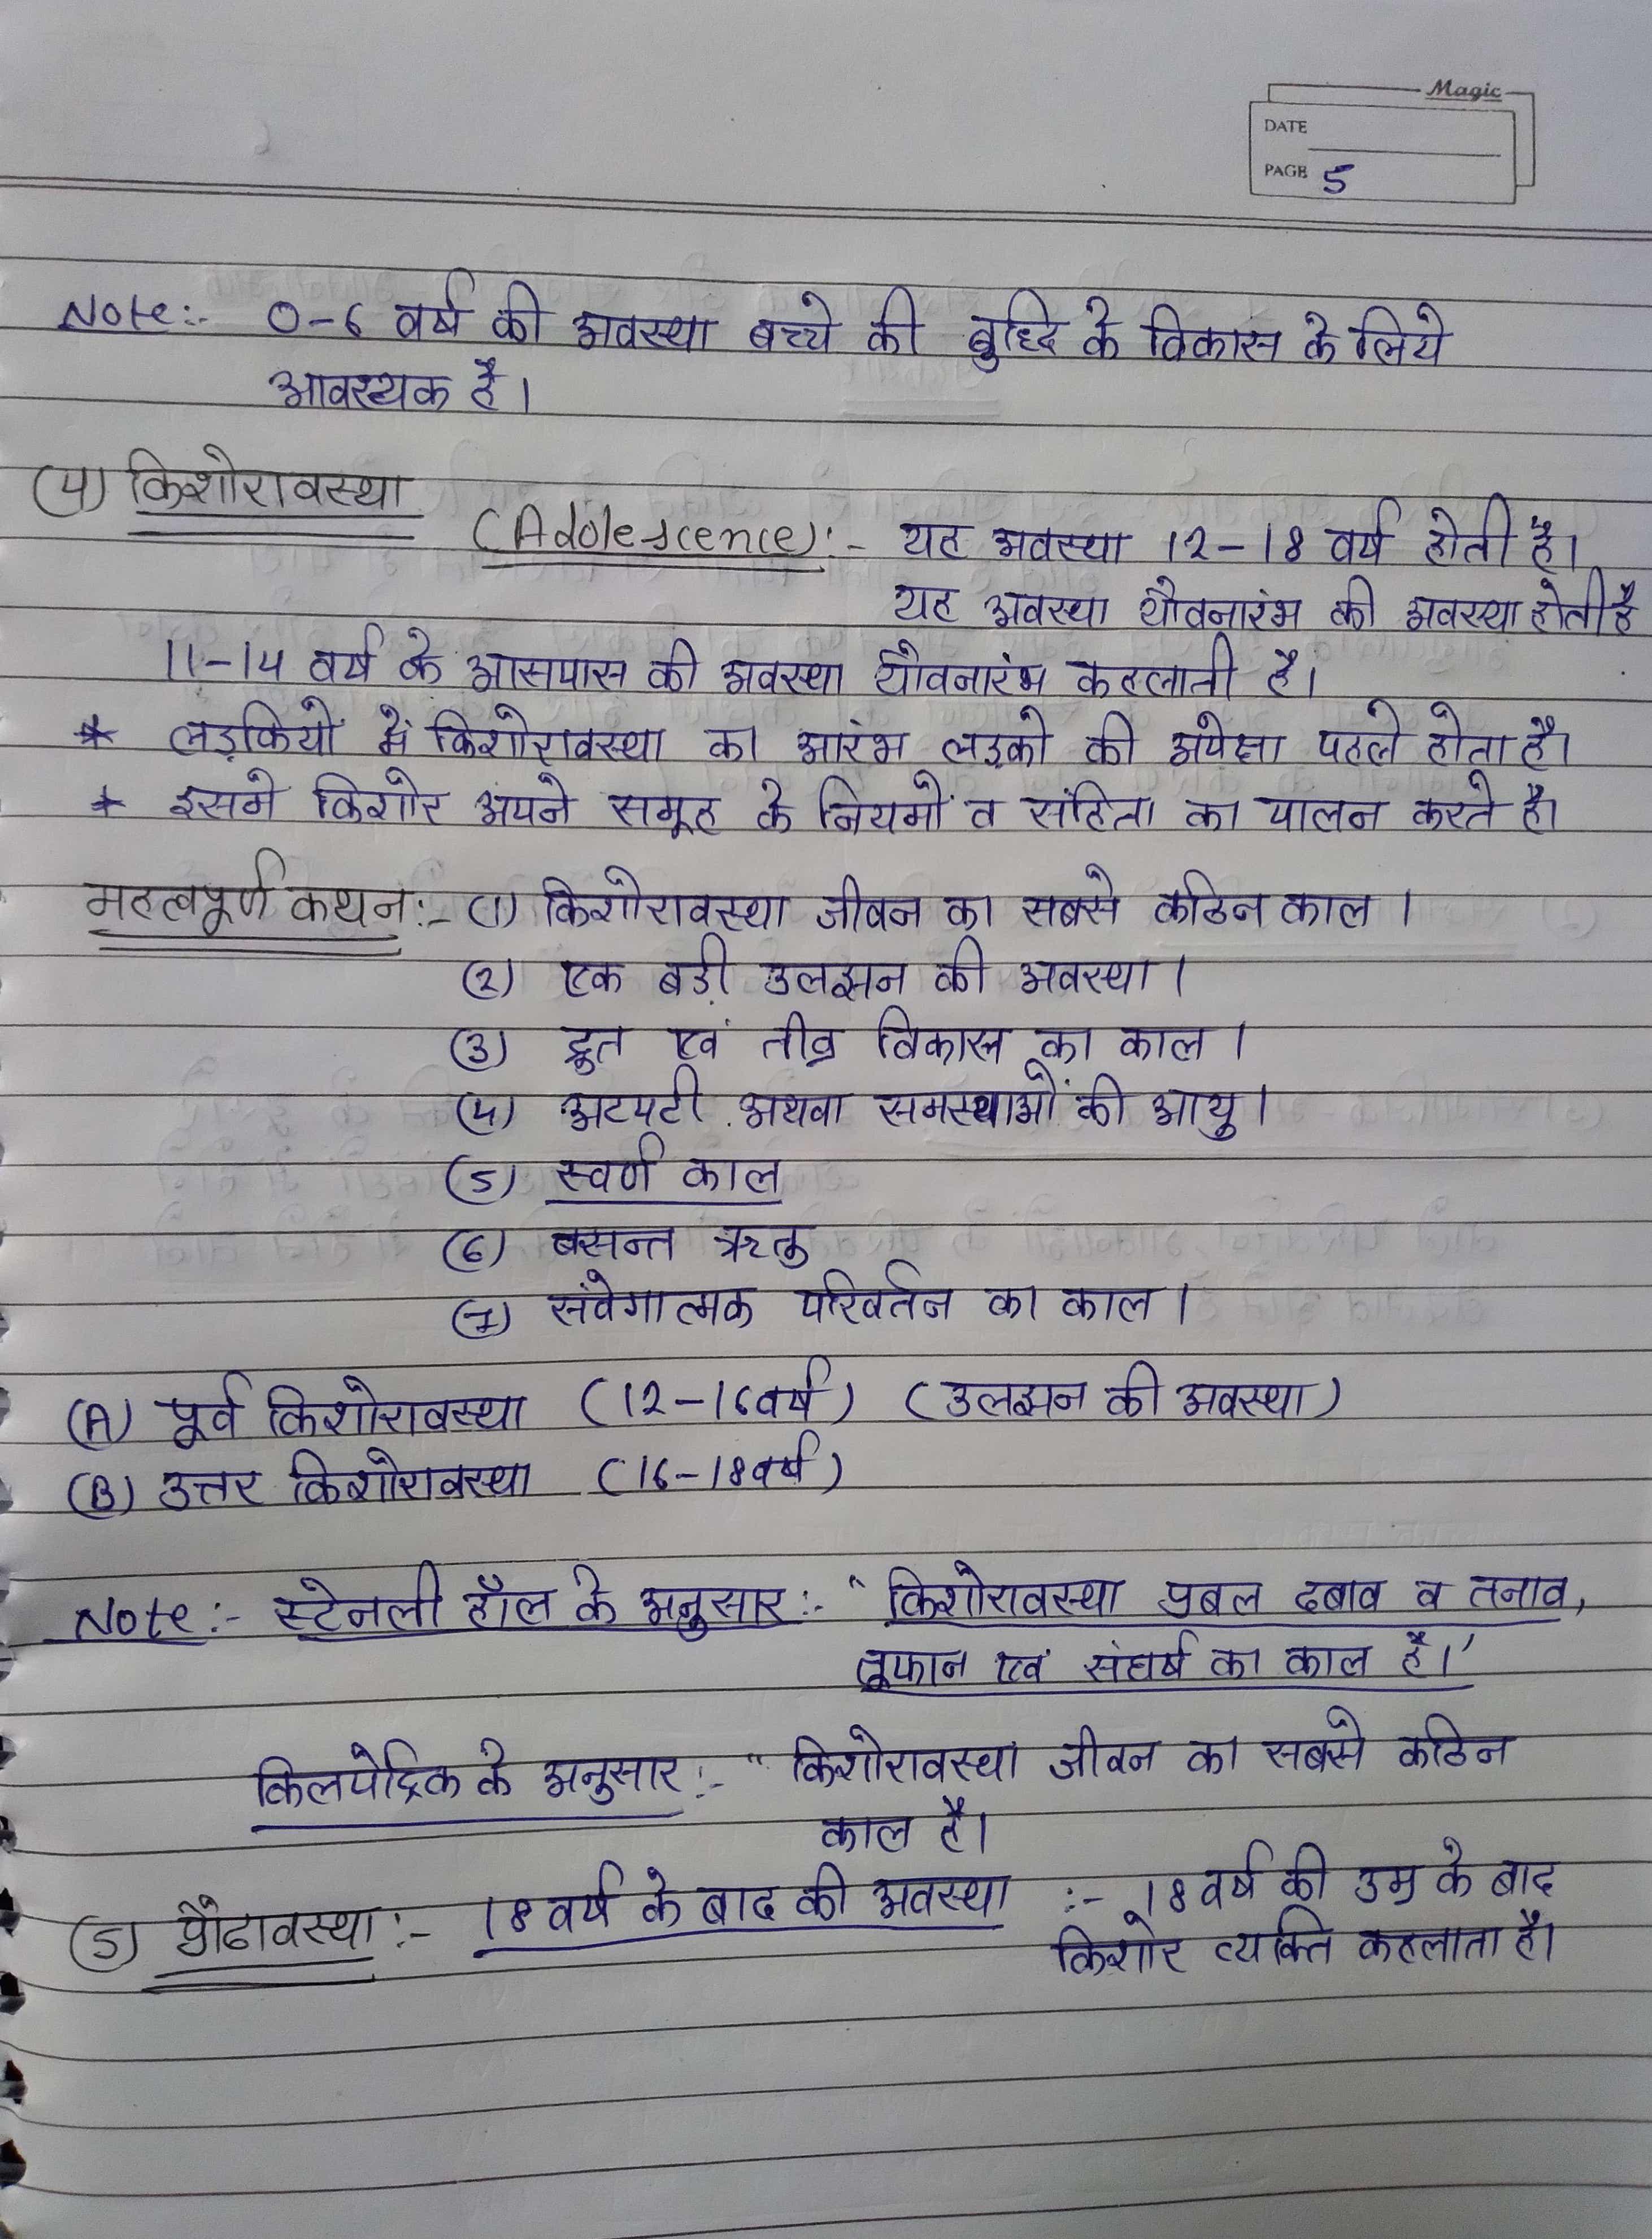 Magic
DATE
PAGE 5
Note:- 0-6 वर्ष की अवस्था बच्चे की बुद्धि के विकास के लिये
आवश्यक है।
(4) किशोरावस्था
(Adolescence):- यह अवस्था 12-18 वर्ष होती है।
यह अवस्था यौवनारंभ की अवस्था होती है
11-14 वर्ष के आसपास की अवस्था यौवनारंभ कहलाती है।
* लड़कियों में किशोरावस्था का आरंभ लड़को की अपेक्षा पहले होता है।
* इसमे किशोर अपने समूह के नियमों व संहिता का पालन करते है।
महत्वपूर्ण कथन:- (1) किशोरावस्था जीवन का सबसे कठिन काल।
(2) एक बड़ी उलझन की अवस्था।
(3) द्रुत एवं तीव्र विकास का काल।
(4) अटपटी अथवा समस्याओं की आयु।
(5) स्वर्ण काल
(6) बसन्त ऋतु
(7) संवेगात्मक परिवर्तन का काल।
(A) पूर्व किशोरावस्था (12-16वर्ष) (उलझन की अवस्था)
(B) उत्तर किशोरावस्था (16-18वर्ष)
Note:- स्टेनली हॉल के अनुसार:- "किशोरावस्था प्रबल दबाव व तनाव,
तूफान एवं संघर्ष का काल है।'
किलपेट्रिक के अनुसार:- "किशोरावस्था जीवन का सबसे कठिन
काल है।
(5) प्रौढावस्था:- 18 वर्ष के बाद की अवस्था :- 18 वर्ष की उम्र के बाद
किशोर व्यक्ति कहलाता है।